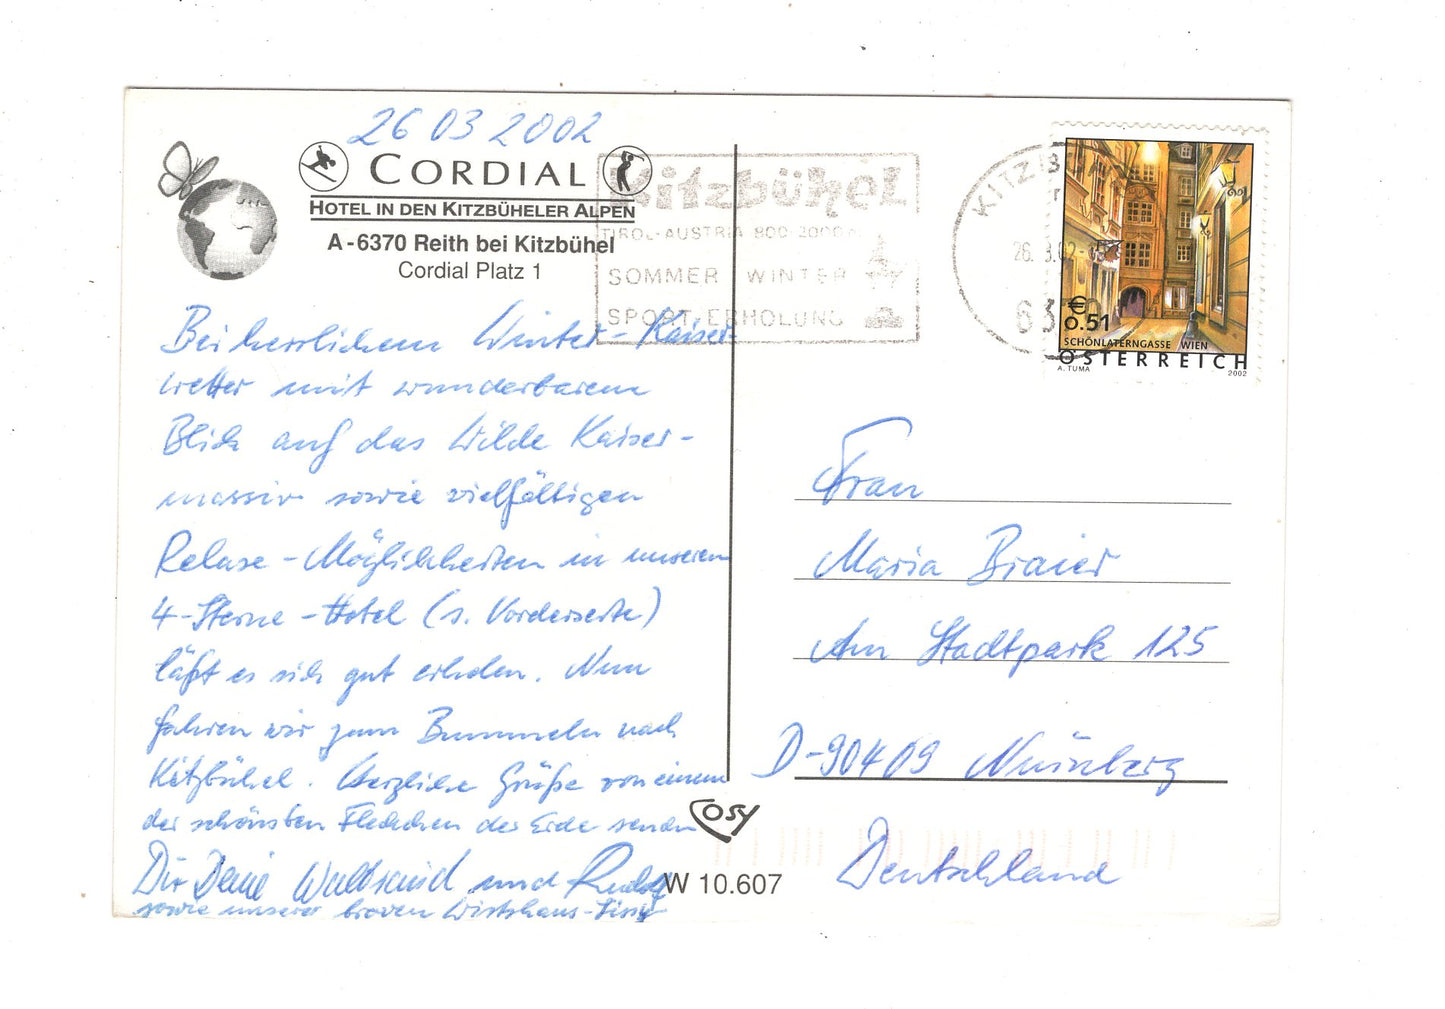 26 03 2002
CORDIAL
HOTEL IN DEN KITZBÜHELER ALPEN
A-6370 Reith bei Kitzbühel
Cordial Platz 1
Kitzbühel
TIROL-AUSTRIA 800-2000 m
SOMMER WINTER
SPORT-ERHOLUNG
KITZB
26. 3.02
63
€
0.51
SCHÖNLATERNGASSE WIEN
ÖSTERREICH
A. TUMA
2002
Bei herrlichem Winter-Kaiser-
wetter mit wunderbarem
Blick auf das Wilde Kaiser-
massiv sowie vielfältigen
Relaxe-Möglichkeiten in unserem
4-Sterne-Hotel (s. Vorderseite)
läßt es sich gut erholen. Nun
fahren wir zum Bummeln nach
Kitzbühel. Herzliche Grüße von einem
der schönsten Fleckchen der Erde senden
Dir Deine und Rudolf
sowie unserer braven Wirtshaus-
Frau
Maria Braier
Am Stadtpark 125
D-90409 Nürnberg
Deutschland
COSY
W 10.607